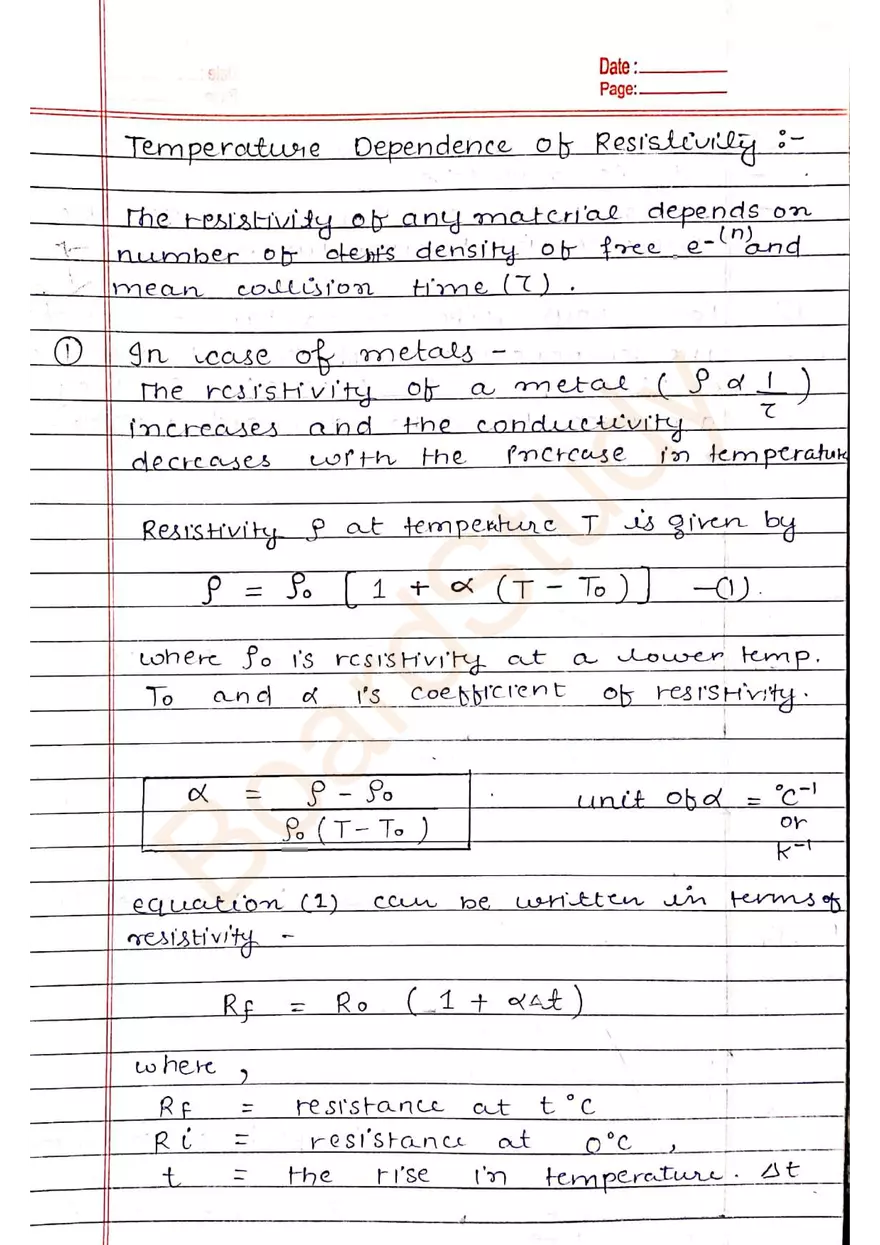 Date :
Page:
Temperature Dependence of Resistivity :-
The resistivity of any material depends on
number of density of free e-(n) and
mean collision time (τ) .
① In case of metals -
The resistivity of a metal ( ρ α 1/τ )
increases and the conductivity
decreases with the increase in temperature
Resistivity ρ at temperature T is given by
ρ = ρ₀ [ 1 + α (T - T₀ ) ] —(1).
where ρ₀ is resistivity at a lower temp.
T₀ and α is coefficient of resistivity.
α = ρ - ρ₀ / ρ₀ (T - T₀ )
unit of α = °C⁻¹
or
K⁻¹
equation (1) can be written in terms of
resistivity -
Rf = R₀ ( 1 + αΔt )
where ,
Rf = resistance at t°C
Ri = resistance at 0°C ,
t = the rise in temperature. Δt
BoardStudy